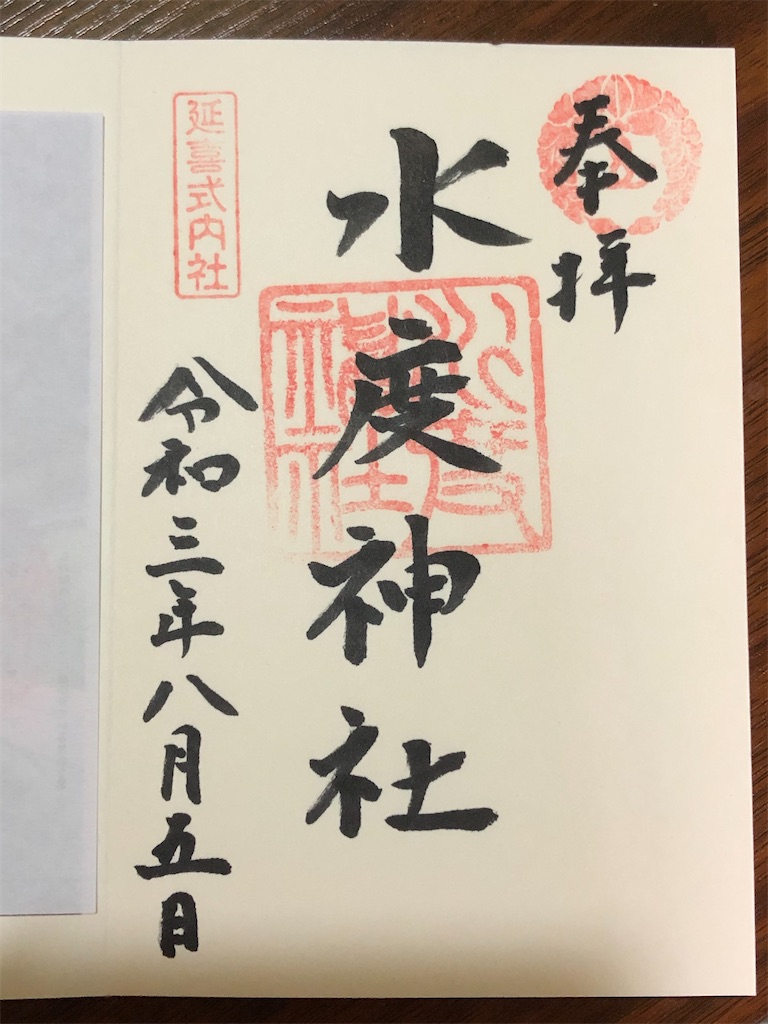 奉拝
水度神社
延喜式内社
令和三年八月五日